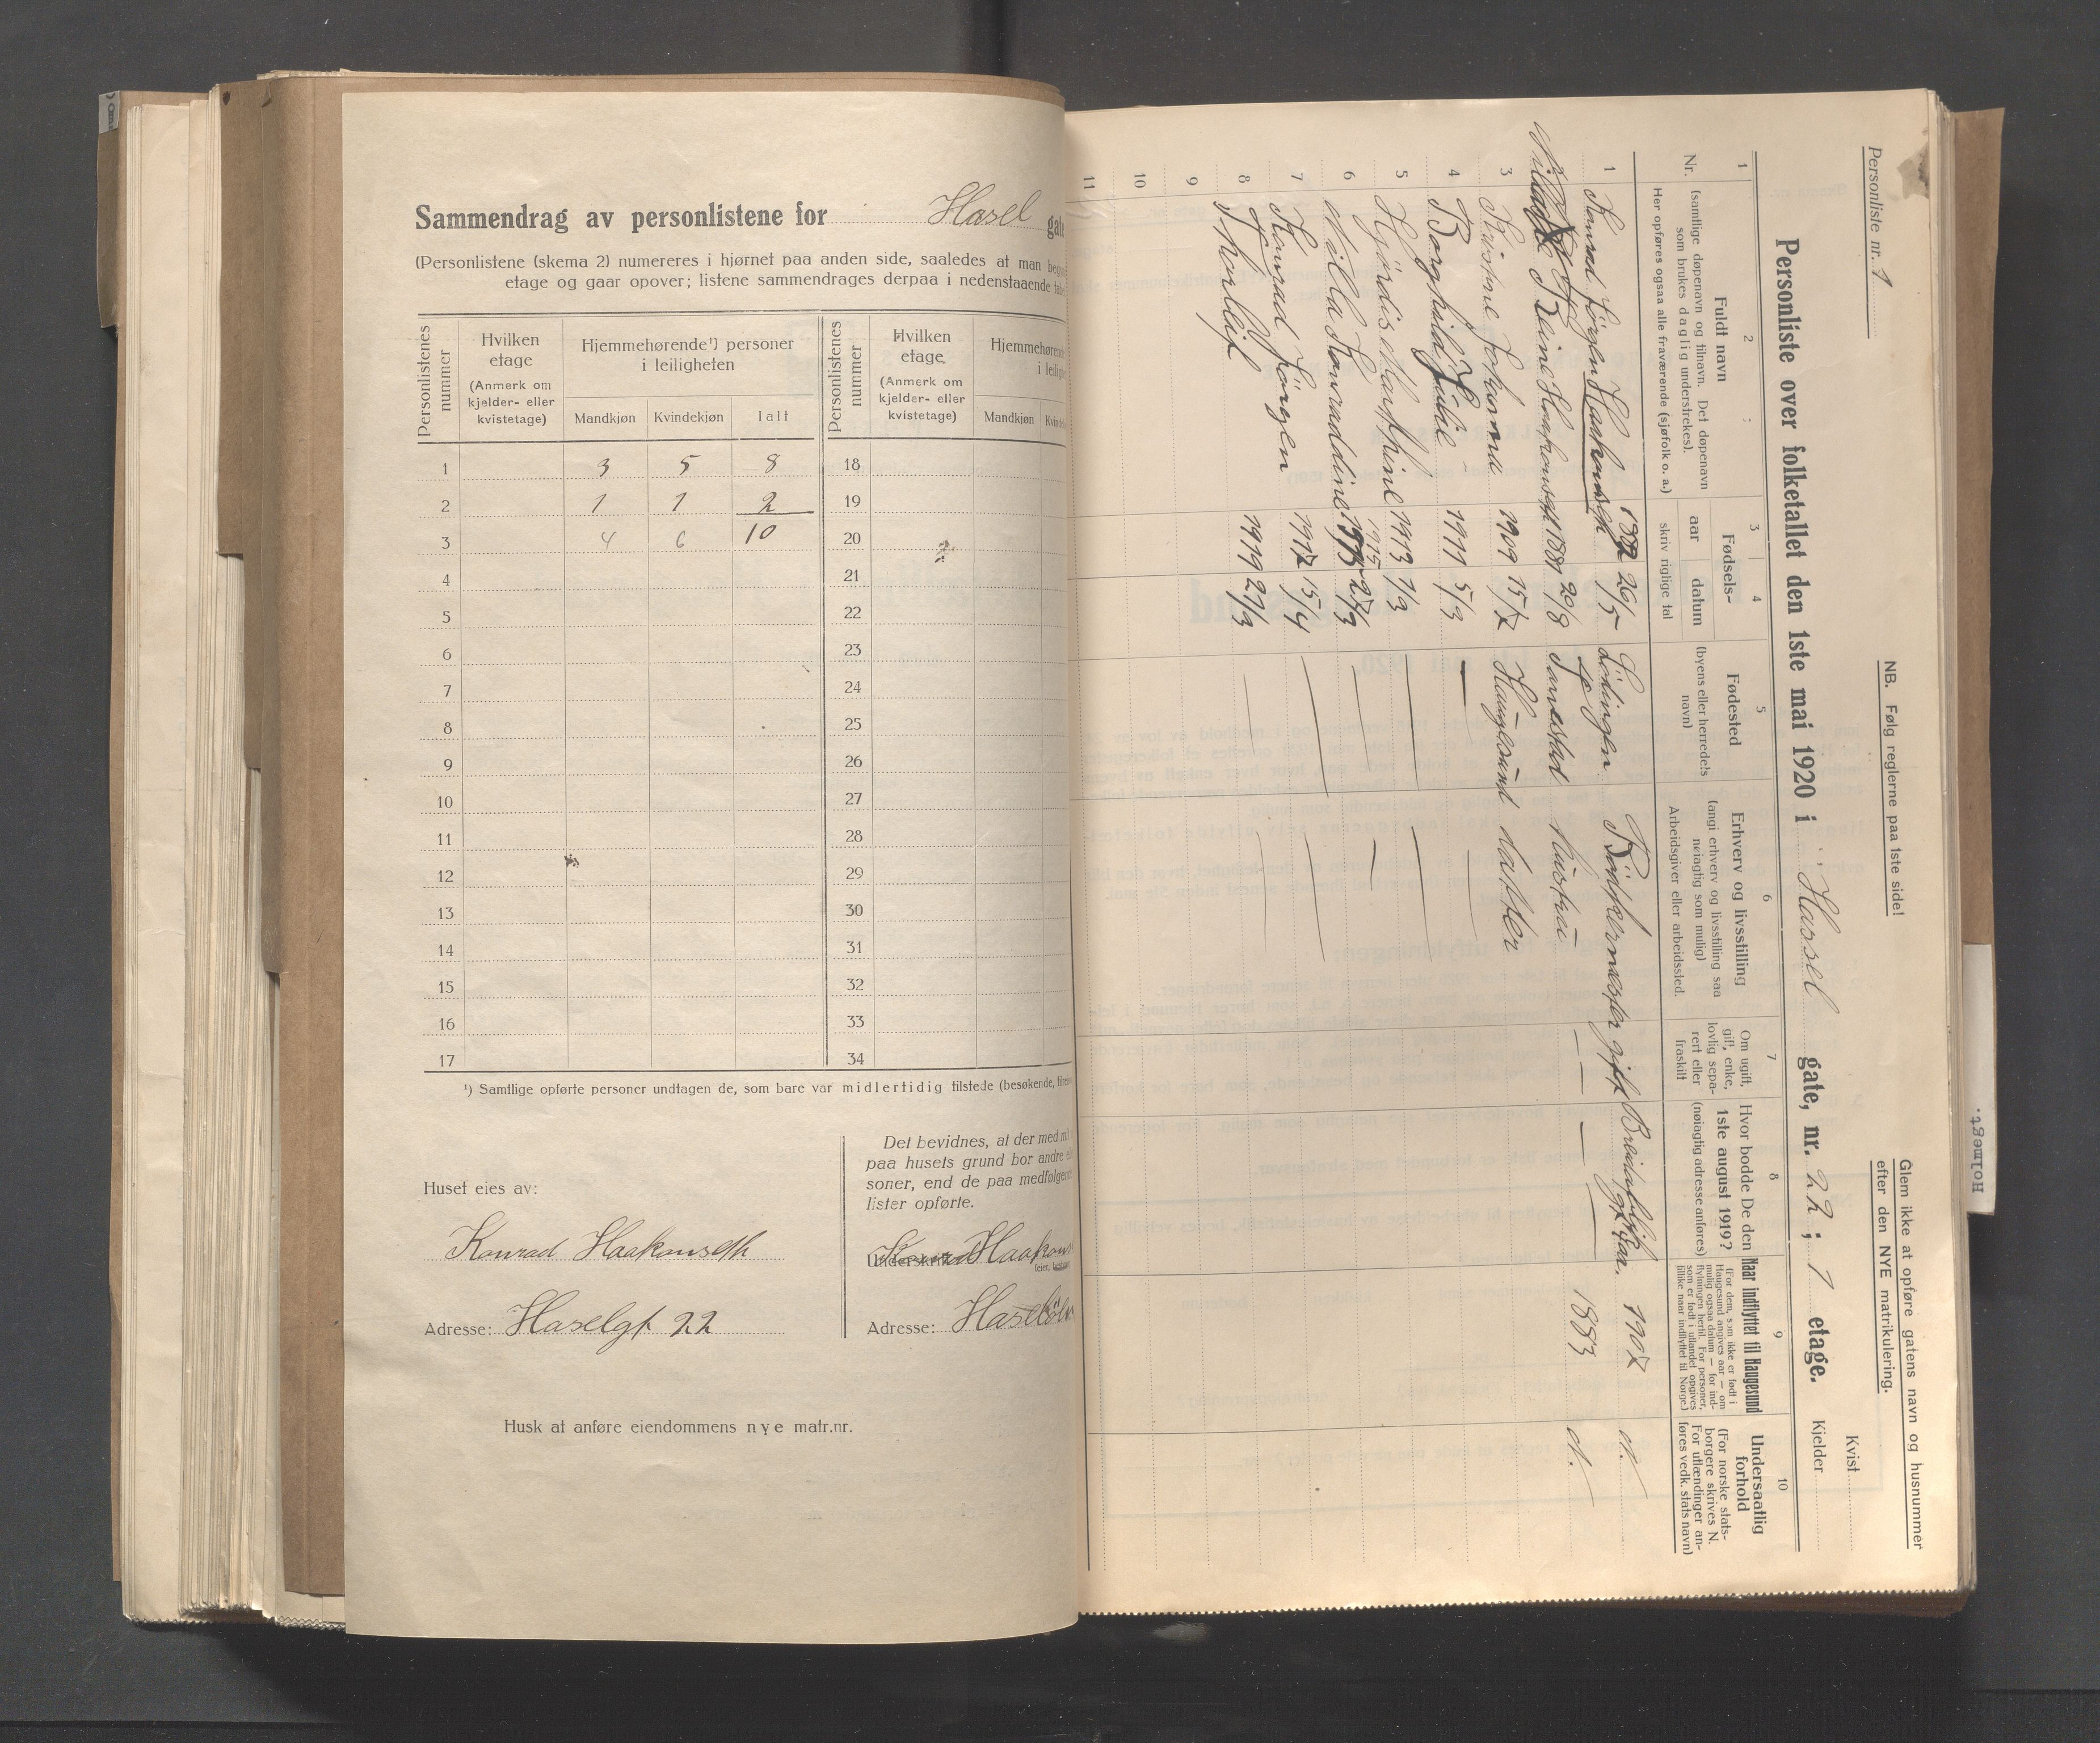 Sammendrag av personlistene for Hasel gate
(Personlistene (skema 2) numereres i hjørnet paa anden side, saaledes at man
etage og gaar opover; listene sammendrages derpaa i nedenstaaende
Personlistenes nummer
Hvilken etage (Anmerk om kjelder- eller kvistetage)
Hjemmehørende¹) personer i leiligheten
Mandkjøn Kvindekjøn Ialt
Personlistenes nummer
Hvilken etage (Anmerk om kjelder- eller kvistetage)
Mandkjøn
1 3 5 8 18
2 1 1 2 19
3 4 6 10 20
4 21
5 22
6 23
7 24
8 25
9 26
10 27
11 28
12 29
13 30
14 31
15 32
16 33
17 34
¹) Samtlige opførte personer undtagen de, som bare var midlertidig tilstede (besøkende,
Huset eies av:
Konrad Haakonseth
Adresse: Haselgt 22
Det bevidnes, at der med
paa husets grund bor andre
soner, end de paa medfølgende
lister opførte.
Underskrift
Adresse:
Husk at anføre eiendommens nye matr.nr.
Personliste nr. 1
NB. Følg reglerne paa 1ste side!
Glem ikke at opføre gatens navn og husnummer
efter den NYE matrikulering.
Personliste over folketallet den 1ste mai 1920 i Hassel gate, nr. 22; 1 etage.
Kvist
Kjelder
1 2 3 4 5 6 7 8 9 10
Nr.
Fuldt navn
(samtlige døpenavn og tilnavn. Det døpenavn
som brukes daglig understrekes).
Her opføres ogsaa alle fraværende (sjøfolk o. a.)
Fødsels-
aar datum
skriv riglige tal
Fødested
(byens eller herredets navn)
Erhverv og livsstilling
(angi erhverv og livsstilling saa
nøiagtig som mulig)
Arbeidsgiver eller arbeidssted.
Om ugift, gift, enke, lovlig separert eller fraskilt
Hvor bodde De den
1ste august 1919?
(nøiagtig adresse anføres)
Naar indflyttet til Haugesund
(For dem, som ikke er født i
Haugesund angives aar — om
mulig ogsaa datum — for ind-
flytningen hertil. For personer,
som er født i utlandet opgives
tillike naar indflyttet til Norge.)
Undersaatlig
forhold
(For norske stats-
borgere skrives N.
For utlændinger an-
føres vedk. stats navn)
1 Konrad Jörgen Haakonseth 1882 26/5 Lödingen gift 1907 N.
Haakonseth 1881 29/8 hustru — — 1883 N.
3 Kristine Johanna 1909 15/7 Haugesund datter
4 Borghild Julie 1911 5/3 — —
5 Hjördis 1913 1/3 — —
6 Milla Konraddine 1915 27/3 — —
7 Konrad Jörgen 1917 15/4 — —
8 Thorleif 1919 21/3 — —
9
10
11
Holmegt.